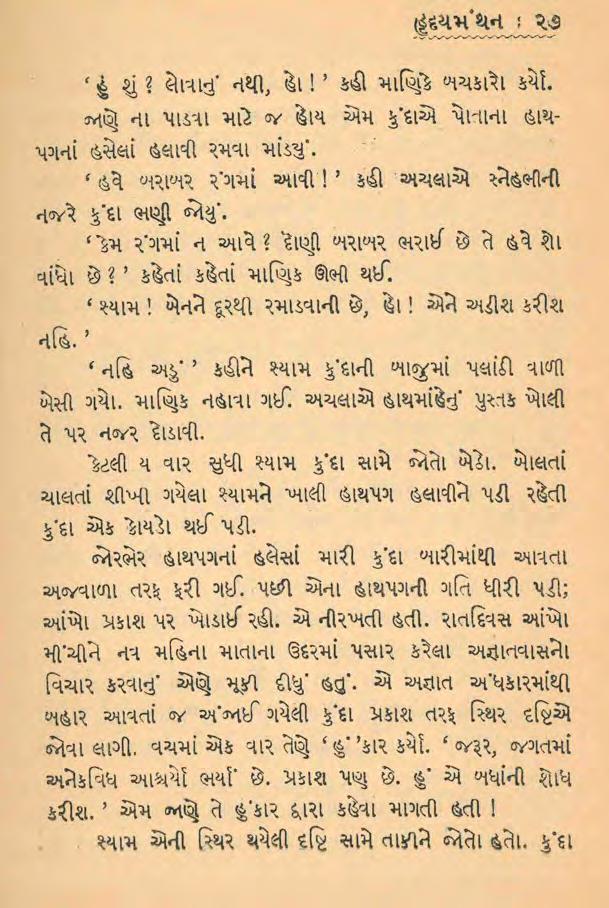 હૃદયમંથન : ૨૭
‘ હું શું ? લોવાનું નથી, હો ! ’ કહી માણિકે બચકારો કર્યો.
જાણે ના પાડવા માટે જ હોય એમ કુંદાએ પોતાના હાથ-
પગનાં હલેસાં હલાવી રમવા માંડ્યું.
‘ હવે બરાબર રંગમાં આવી ! ’ કહી અચલાએ સ્નેહભીની
નજરે કુંદા ભણી જોયું.
‘ કેમ રંગમાં ન આવે ? દોણી બરાબર ભરાઈ છે તે હવે શો
વાંધો છે ? ’ કહેતાં કહેતાં માણિક ઊભી થઈ.
‘ શ્યામ ! બેનને દૂરથી રમાડવાની છે, હો ! એને અડીશ કરીશ
નહિ. ’
‘ નહિ અડું ’ કહીને શ્યામ કુંદાની બાજુમાં પલાંઠી વાળી
બેસી ગયો. માણિક નહાવા ગઈ. અચલાએ હાથમાંહેનું પુસ્તક ખોલી
તે પર નજર દોડાવી.
કેટલી ય વાર સુધી શ્યામ કુંદા સામે જોતો બેઠો. બોલતાં
ચાલતાં શીખી ગયેલા શ્યામને ખાલી હાથપગ હલાવીને પડી રહેતી
કુંદા એક કોયડો થઈ પડી.
જોરભેર હાથપગનાં હલેસાં મારી કુંદા બારીમાંથી આવતા
અજવાળા તરફ ફરી ગઈ. પછી એના હાથપગની ગતિ ધીરી પડી;
આંખો પ્રકાશ પર ખોડાઈ રહી. એ નીરખતી હતી. રાતદિવસ આંખો
મીંચીને નવ મહિના માતાના ઉદરમાં પસાર કરેલા અજ્ઞાતવાસનો
વિચાર કરવાનું એણે મૂકી દીધું હતું. એ અજ્ઞાત અંધકારમાંથી
બહાર આવતાં જ અંજાઈ ગયેલી કુંદા પ્રકાશ તરફ સ્થિર દૃષ્ટિએ
જોવા લાગી. વચમાં એક વાર તેણે ‘ હું ’કાર કર્યો. ‘ જરૂર, જગતમાં
અનેકવિધ આશ્ચર્યો ભર્યાં છે. પ્રકાશ પણ છે. હું એ બધાંની શોધ
કરીશ. ’ એમ જાણે તે હુંકાર દ્વારા કહેવા માગતી હતી !
શ્યામ એની સ્થિર થયેલી દૃષ્ટિ સામે તાકીને જોતો હતો. કુંદા